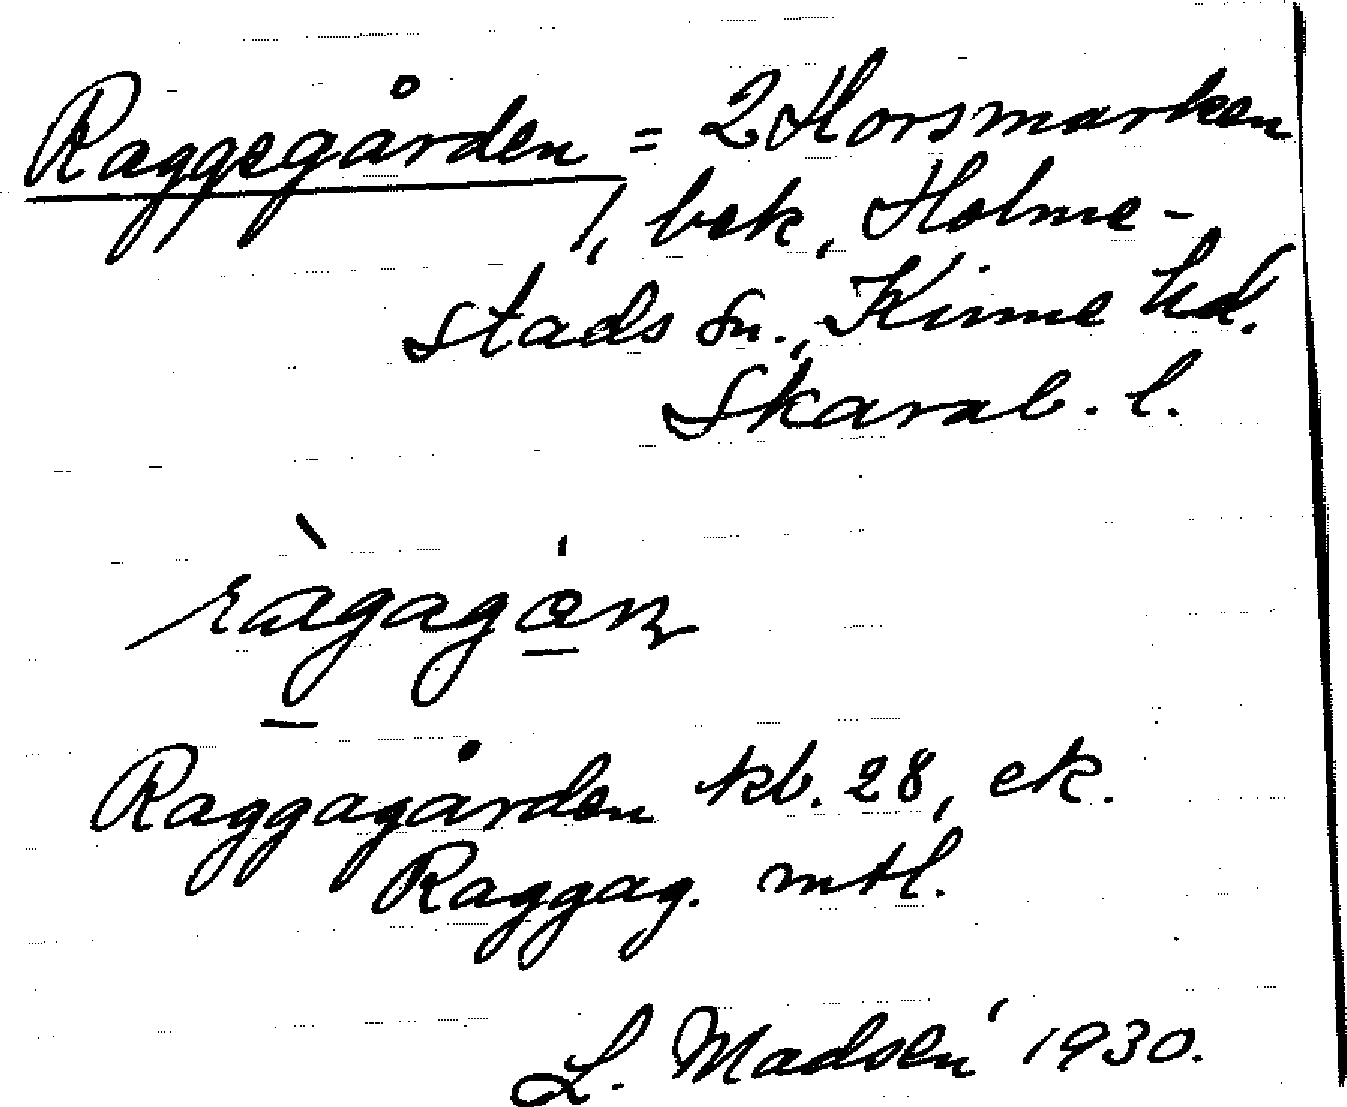 Raggegården = 2 Horsmarken
1, bek, Holme-
stads sn., Kinne hd.
Skarab. l.
Raggagården kb. 28, ek.
Raggag. mtl.
L. Madsén 1930.